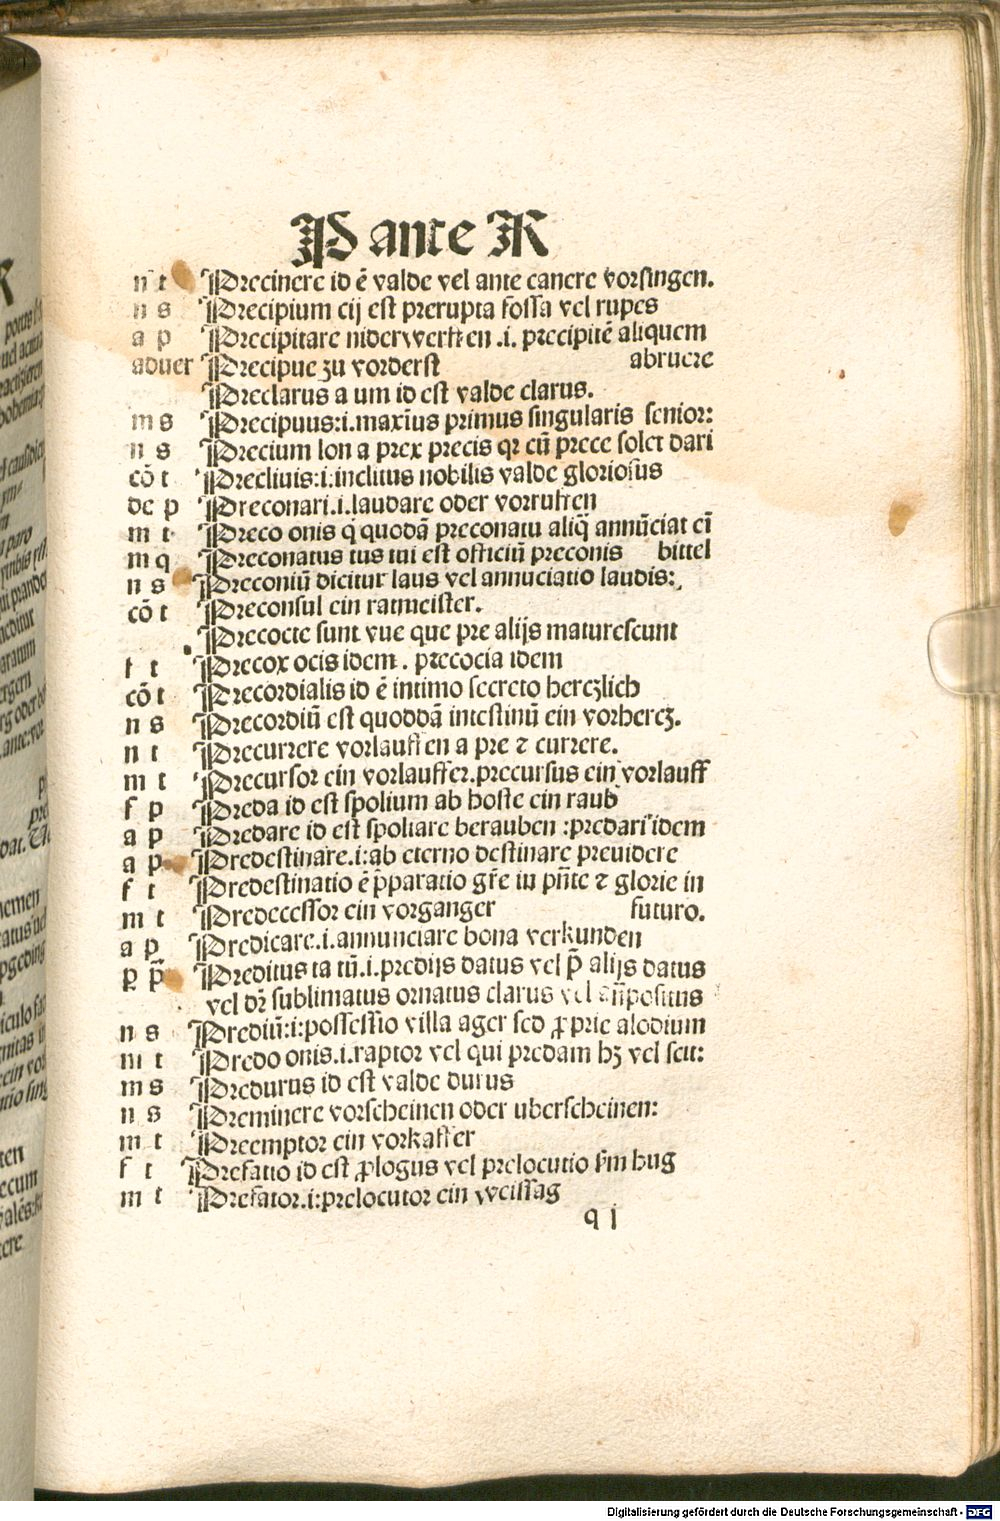 P ante R
n t Precinere id ē valde vel ante canere vorsingen.
n s Precipium cij est prerupta fossa vel rupes
a p Precipitare niderwerffen .i. precipitē aliquem
abruere
aduer Precipue zu vorderst
Preclarus a um id est valde clarus.
m s Precipuus:i.maxīus primus singularis senior:
n s Precium lon a prex precis qr cū prece solet dari
cō t Precliuis:i:inclitus nobilis valde gloriosus
de p Preconari.i.laudare oder vorruffen
m t Preco onis q quodā preconatu aliq annūciat eī
m q Preconatus tus tui est officiū preconis bittel
n s Preconiū dicitur laus vel annuciatio laudis:
cō t Preconsul ein ratmeister.
Precocte sunt vue que pre alijs maturescunt
f t Precox ocis idem . precocia idem
cō t Precordialis id ē intimo secreto herczlich
n s Precordiū est quoddā intestinū ein vorhercz.
n t Precurrere vorlauffen a pre ⁊ currere.
m t Precursor ein vorlauffer.precursus ein vorlauff
f p Preda id est spolium ab hoste ein raub
a p Predare id est spoliare berauben :predari idem
a p Predestinare.i:ab eterno destinare preuidere
f t Predestinatio ē p̄paratio gr̄e in pn̄te ⁊ glorie in
futuro.
m t Predecessor ein vorganger
a p Predicare.i.annunciare bona verkunden
ꝑ p̄ Preditus ta tū.i.predijs datus vel p̄ alijs datus
vel dr̄ sublimatus ornatus clarus vel
n s Prediū:i:possessio villa ager sed ꝓprie alodium
m t Predo onis.i.raptor vel qui predam hꝫ vel
m s Predurus id est valde durus
n s Preminere vorscheinen oder uberscheinen:
m t Preemptor ein vorkaffer
f t Prefatio id est ꝓlogus vel prelocutio sm̄ hug
m t Prefator.i:prelocutor ein weissag
q j
Digitalisierung gefördert durch die Deutsche Forschungsgemeinschaft - DFG